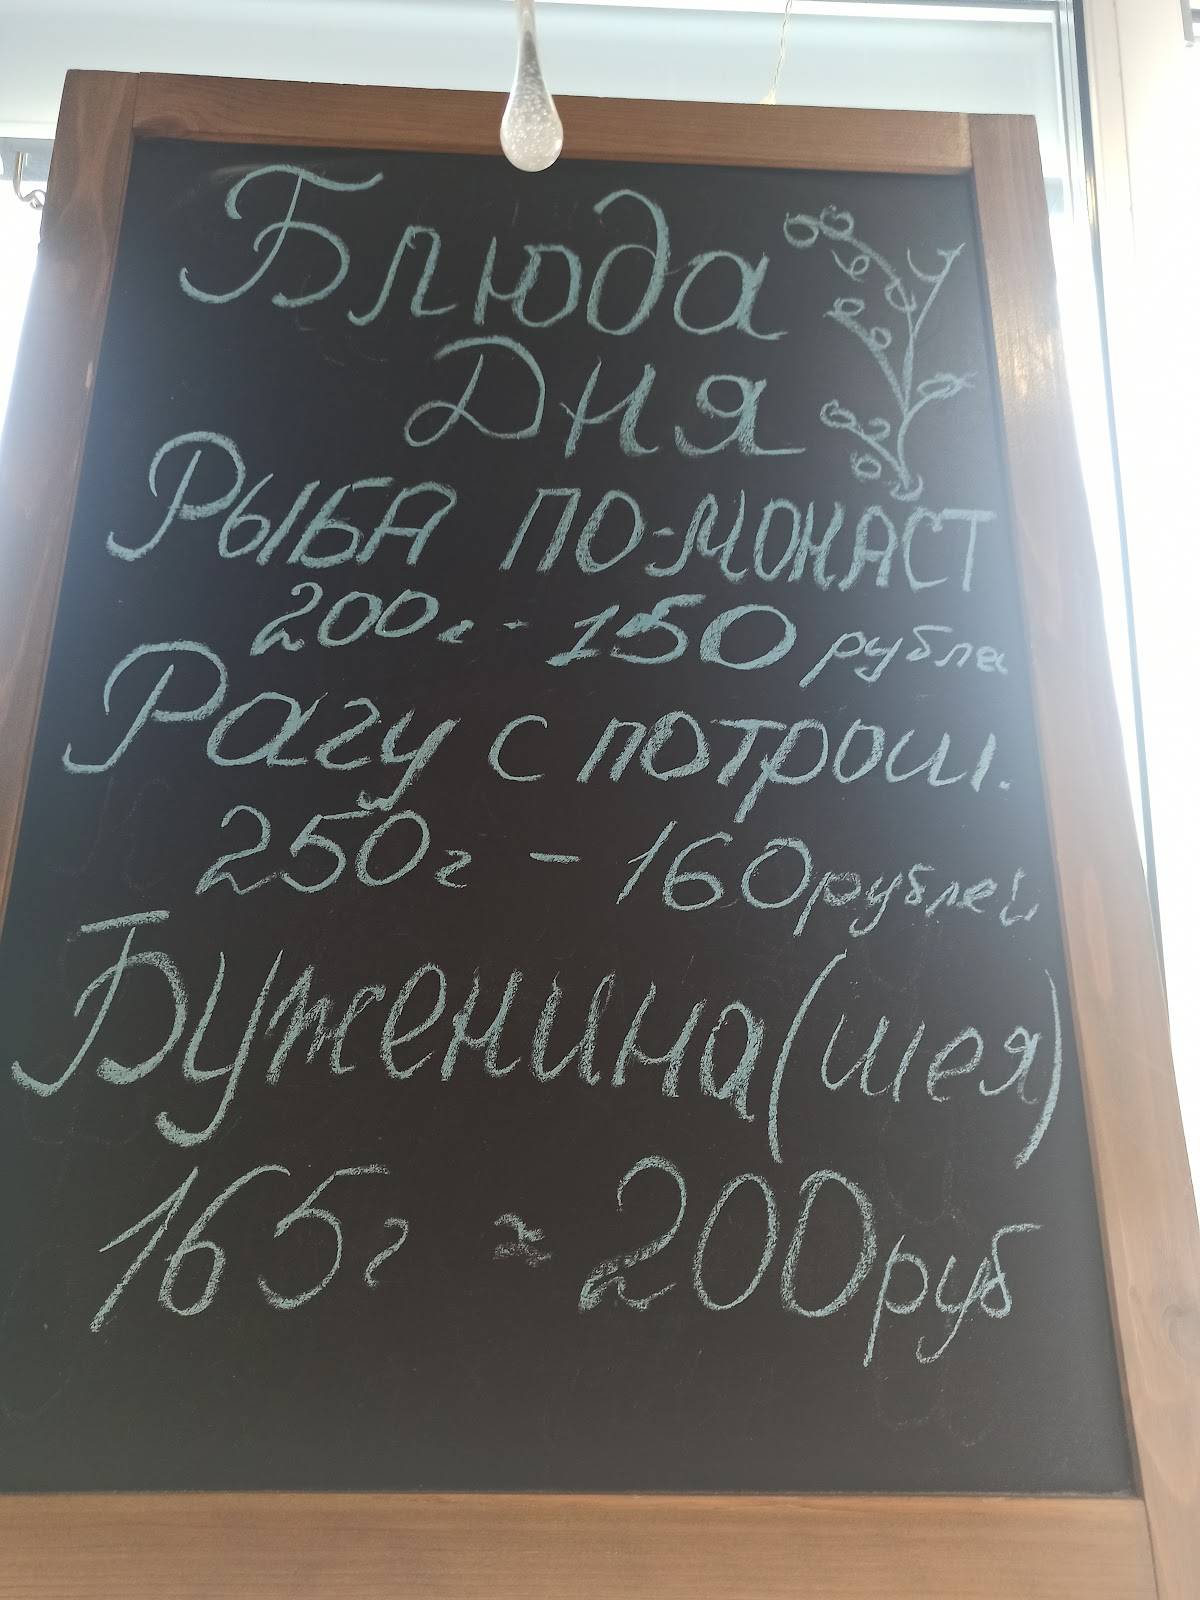 Блюда
Дня
РЫБА ПО-МОНАСТ
200г - 150 рубле
Рагу с потрош.
250г - 160 рублей
Буженина (шея)
165г ≈ 200руб